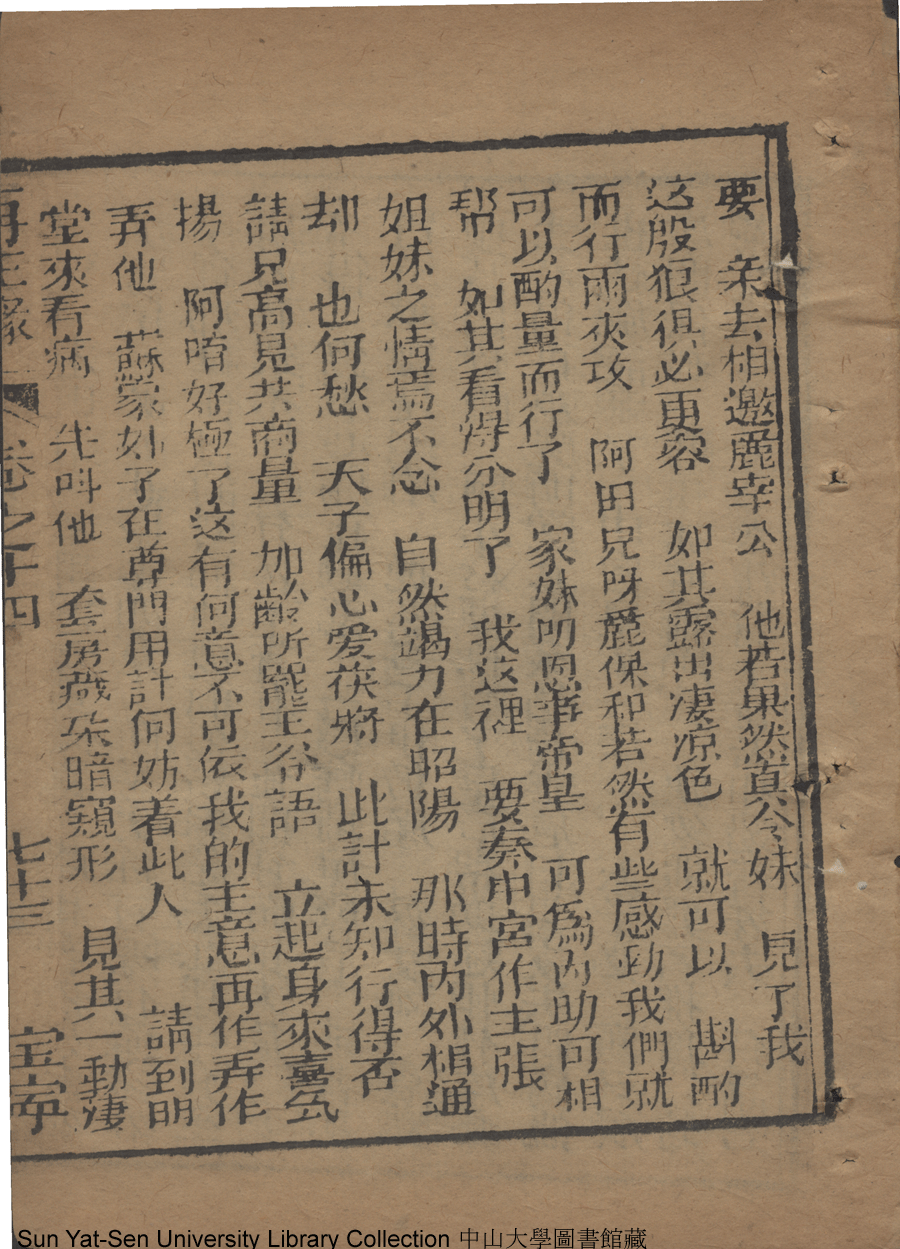 要　亲去相邀麗宰公　他若果然真令妹　見了我
这般狠很必更容　如其露出凄凉色　就可以　斟酌
而行兩夾攻　阿田兄呀麗保和若然有些感動我們就
可以酌量而行了　家妹叨恩事帝皇　可為內助可相
帮　如其看得分明了　我这裡　要奏中宮作主張
姐妹之情焉不念　自然竭力在昭陽　那時內外相通
却　也何愁　天子偏心爱茯將　此計未知行得否
請兄高見共商量　加齡听罷王爷語　立起身來喜氣
揚　阿唷好極了这有何意不可依我的主意再作弄作
弄他　蘇蒙外子在尊門用計何妨着此人　請到明
堂來看病　先呌他　套房藏朶暗窺形　見其一動凄
再生緣　卷之十四　七十三　宝寧
Sun Yat-Sen University Library Collection 中山大學圖書館藏